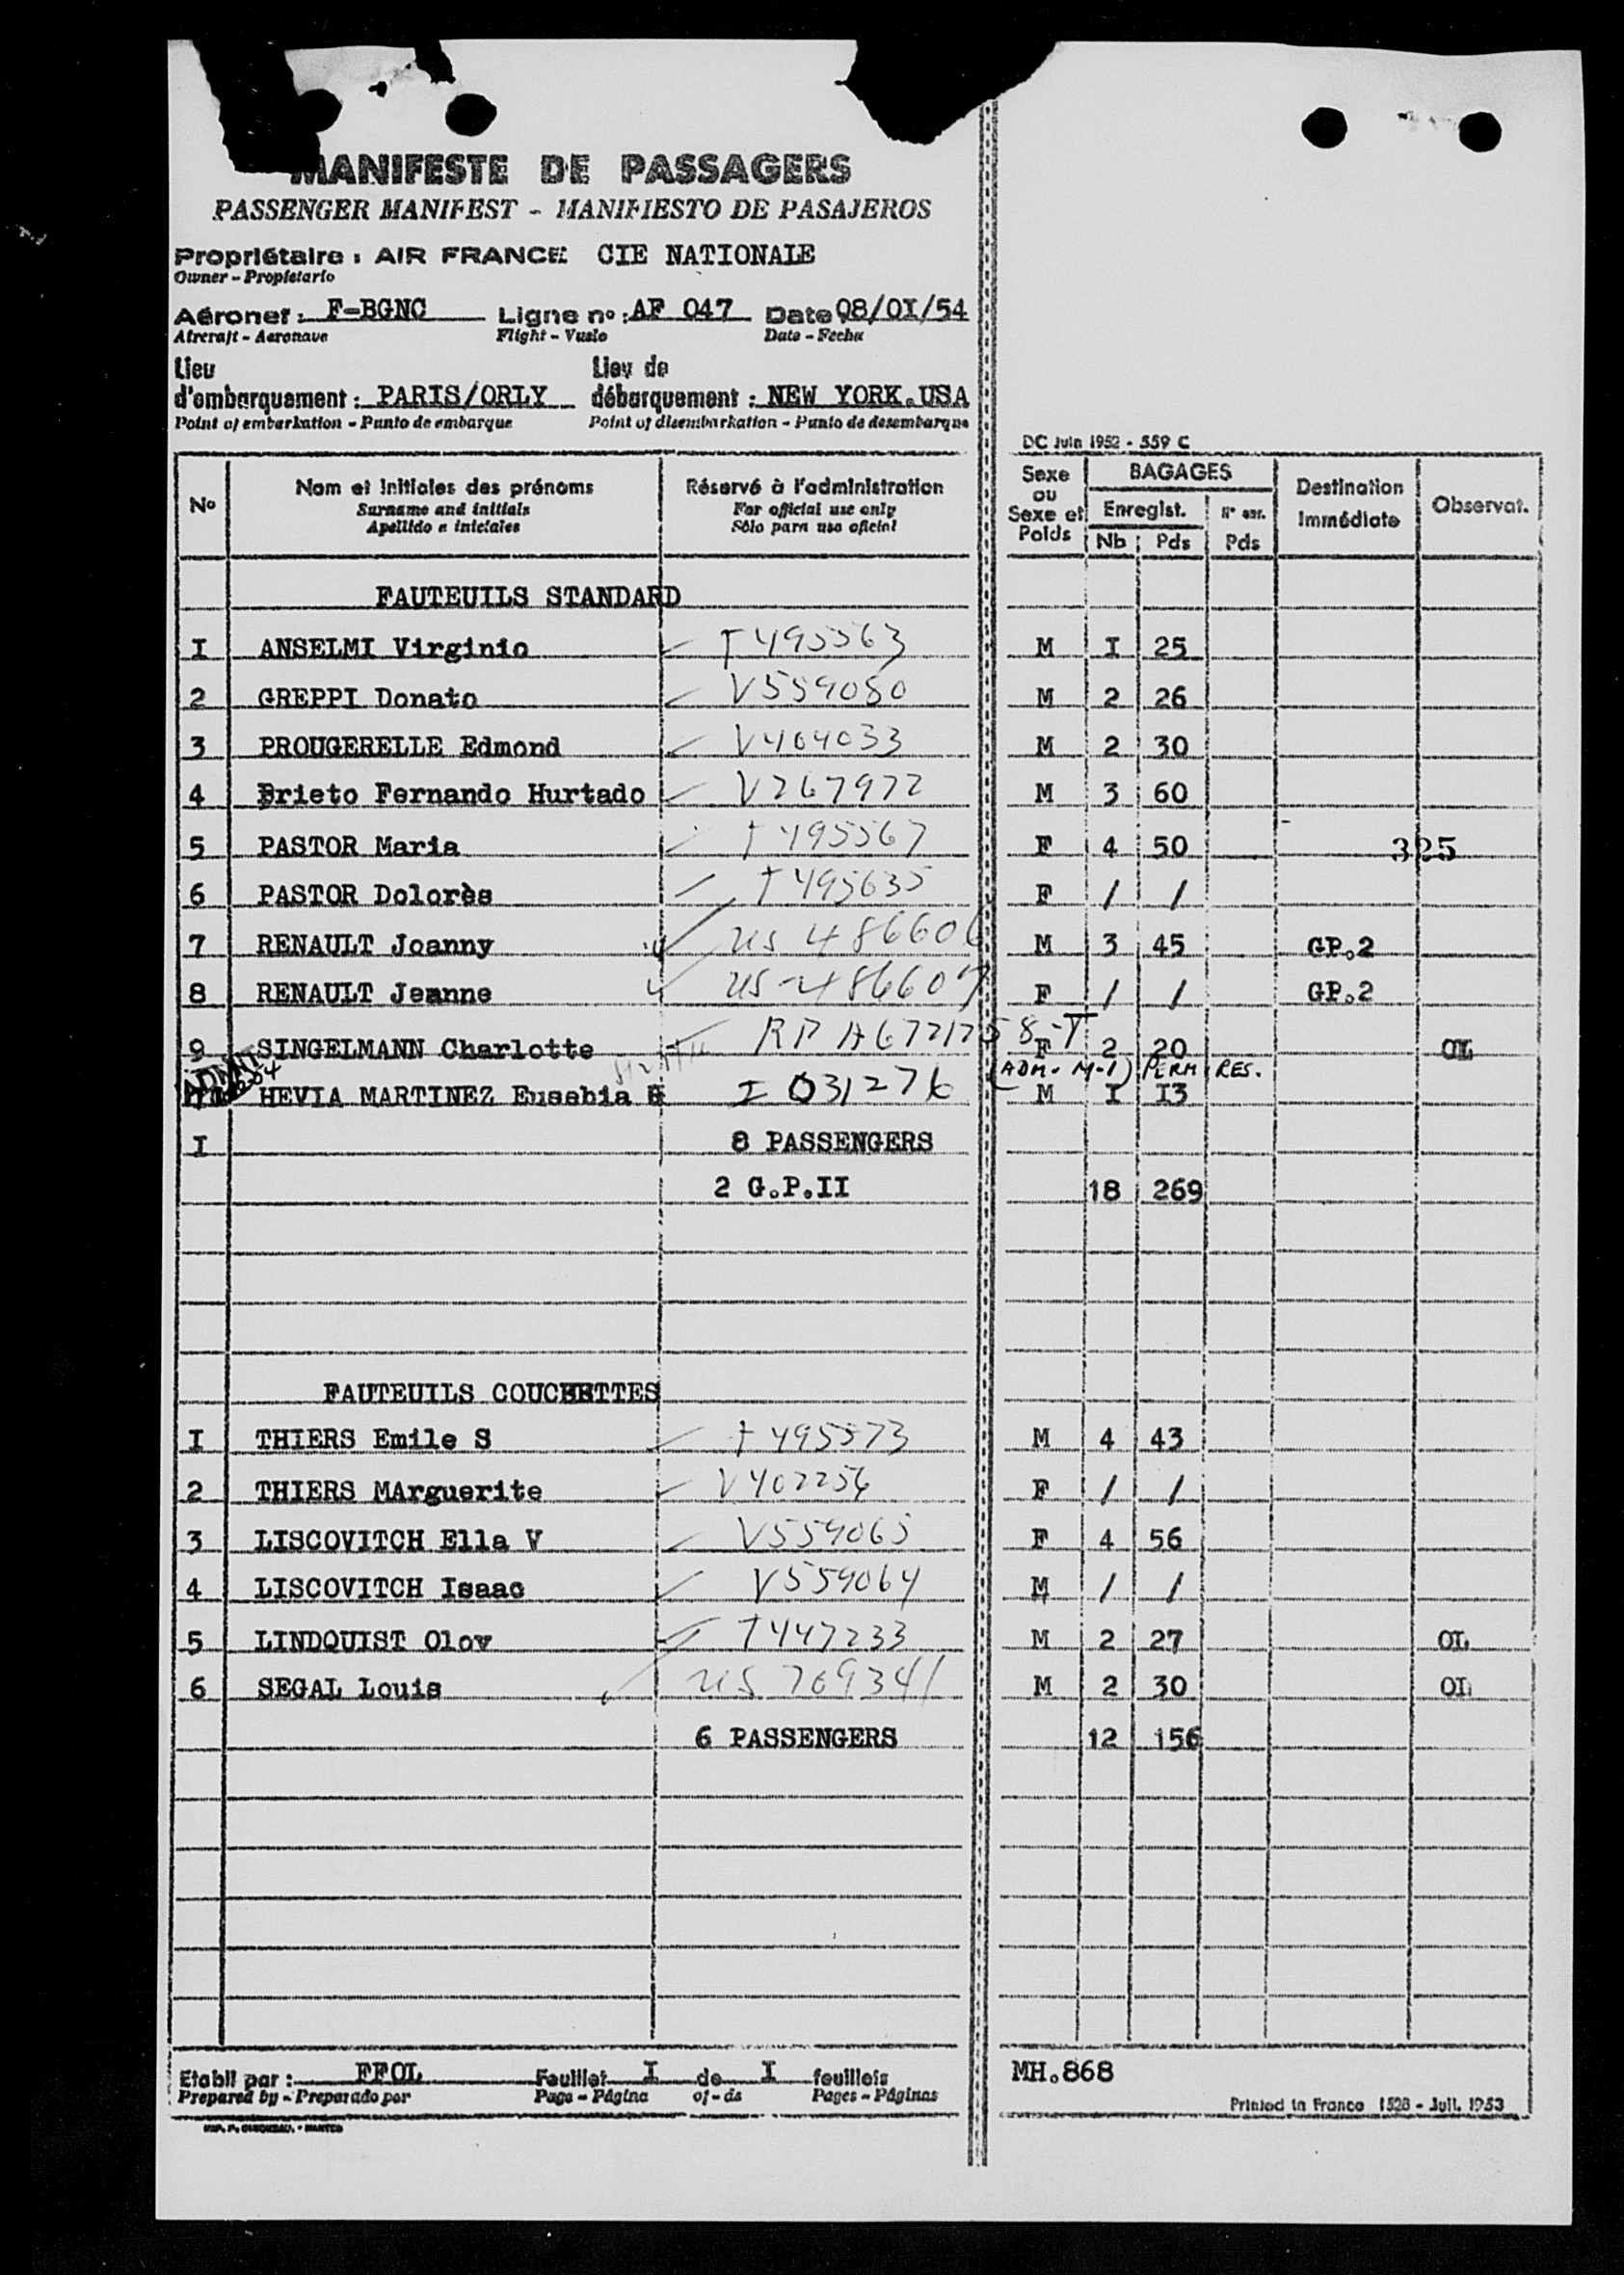 MANIFESTE DE PASSAGERS
PASSENGER MANIFEST - MANIFIESTO DE PASAJEROS
Propriétaire : AIR FRANCE CIE NATIONALE
Owner - Propietario
Aéronef : F-BGNC Ligne no : AF 047 Date 08/OI/54
Aircraft - Aeronave Flight - Vuelo Date - Fecha
Lieu d'embarquement : PARIS/ORLY Lieu de débarquement : NEW YORK.USA
Point of embarkation - Punto de embarque Point of disembarkation - Punto de desembarque
DC Juin 1952 - 559 C
No Nom et initiales des prénoms Réservé à l'administration Sexe ou Sexe et Poids BAGAGES Destination Immédiate Observat.
Surname and initials For official use only Enregist. N° enr.
Apellido e iniciales Sólo para uso oficial Nb Pds Pds
FAUTEUILS STANDARD
I ANSELMI Virginio T495563 M I 25
2 GREPPI Donato V559080 M 2 26
3 PROUGERELLE Edmond V404033 M 2 30
4 Prieto Fernando Hurtado V267972 M 3 60
5 PASTOR Maria T495567 F 4 50 325
6 PASTOR Dolorès T495635 F / /
7 RENAULT Joanny US 486606 M 3 45 GP.2
8 RENAULT Jeanne US-486607 F / / GP.2
9 SINGELMANN Charlotte RP A6721758-T F 2 20 OL
(ADM. M-1) PERM RES.
HEVIA MARTINEZ Eusebia I 031276 M I I3
I 8 PASSENGERS
2 G.P.II 18 269
FAUTEUILS COUCHETTES
I THIERS Emile S T495573 M 4 43
2 THIERS MArguerite V402256 F / /
3 LISCOVITCH Ella V V559065 F 4 56
4 LISCOVITCH Isaac V559064 M / /
5 LINDQUIST Olov T447233 M 2 27 OL
6 SEGAL Louis US 709341 M 2 30 OL
6 PASSENGERS 12 156
Etabli par : FFOL Feuillet I de I feuillets MH.868
Prepared by - Preparado por Page - Página of - de Pages - Páginas
Printed in France 1528 - Juil. 1953